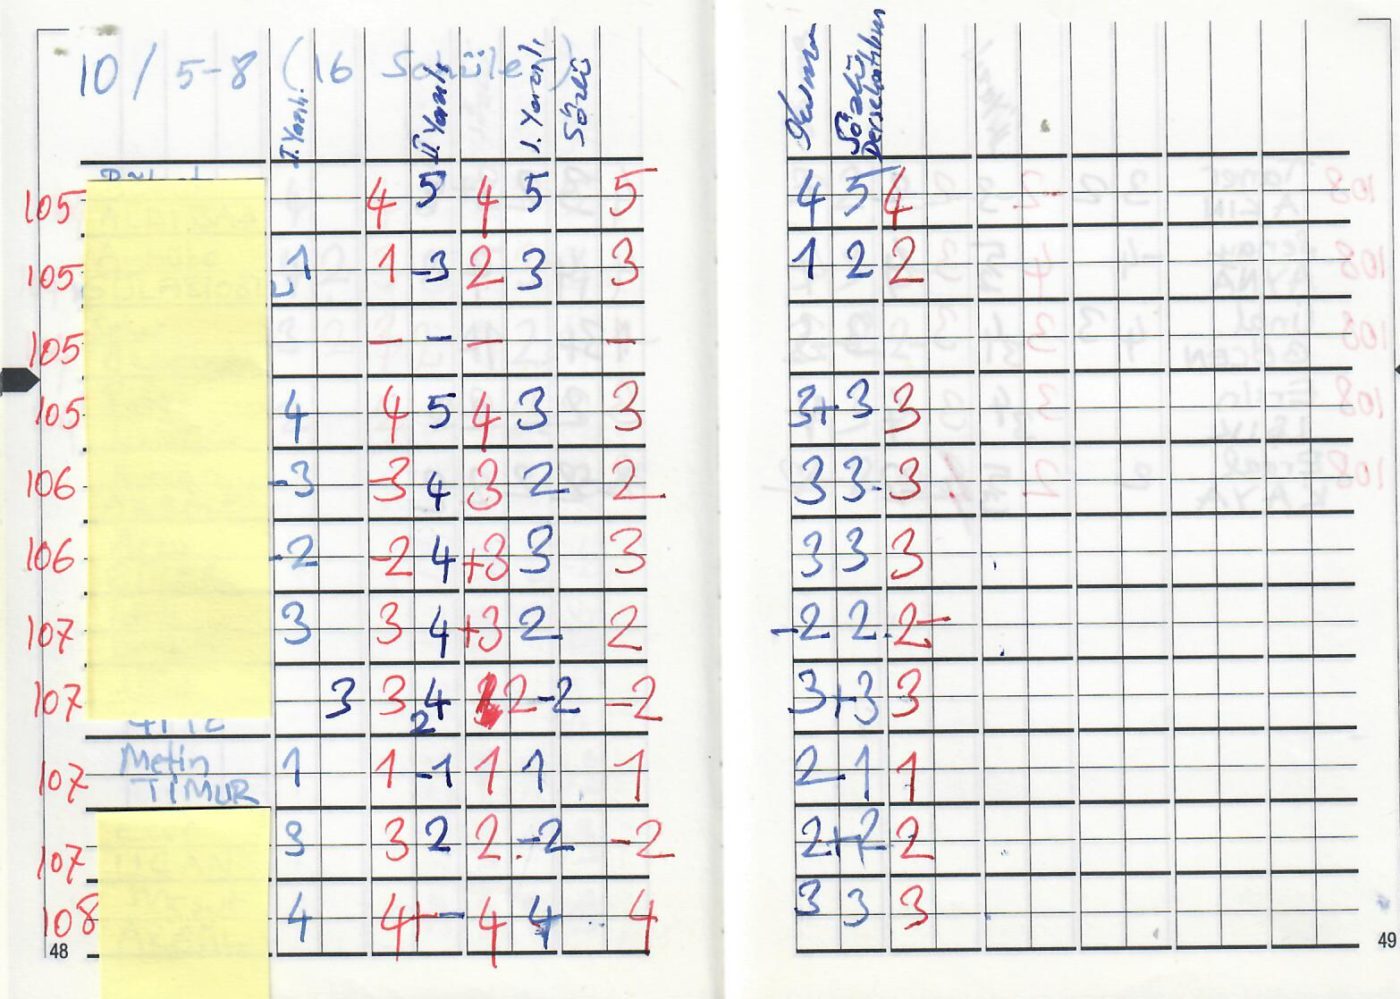 10 / 5-8 (16 Schüler)
I. Yazılı
II. Yazılı
I. Yazılı
Sözlü
Sözlü
105 4 5 4 5 5 4 5 4
105 1 1 -3 2 3 3 1 2 2
105 - - - -
105 4 4 5 4 3 3 3+ 3 3
106 -3 -3 4 3 2 2 3 3- 3
106 -2 -2 4 +3 3 3 3 3 3
107 3 3 4 +3 2 2 -2 2- 2-
107 3 3 4 2 2 -2 -2 3 +3 3
107 Metin TIMUR 1 1 -1 1 1 1 2 1 1
107 3 3 2 2 -2 -2 2 +2 2
108 4 4+ - 4 4 4 3 3 3
48
49